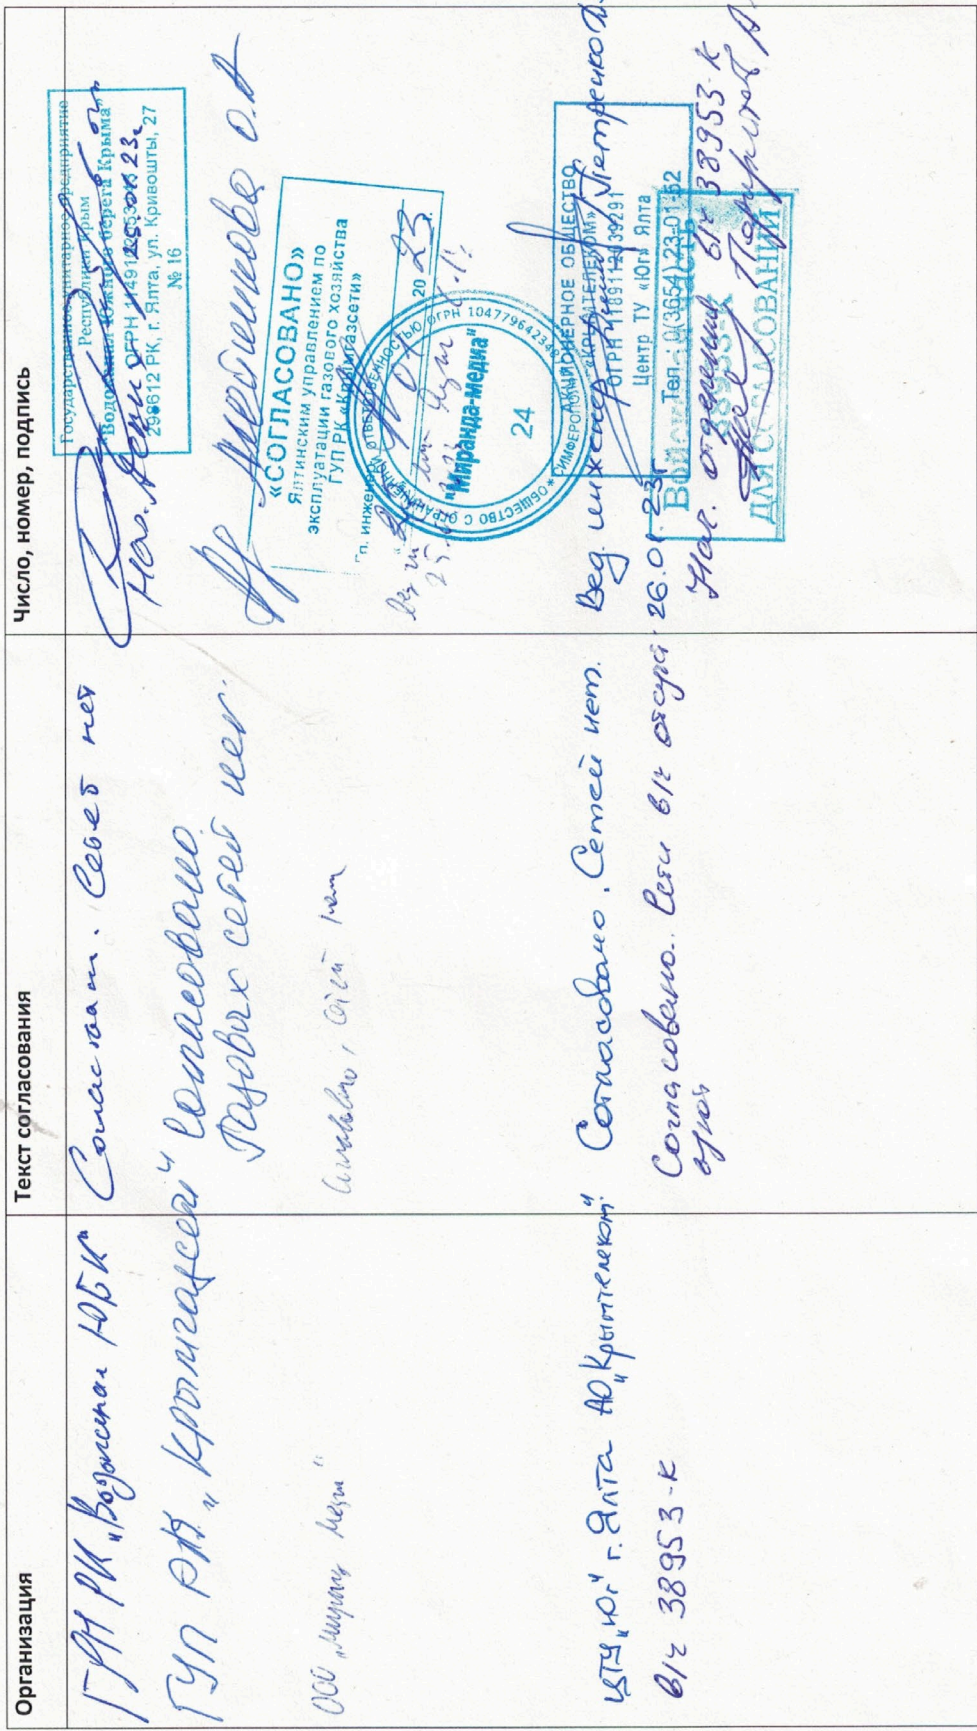 Организация
Текст согласования
Число, номер, подпись
ГУП РК „Водоканал ЮБК"
Согласован. Сетей нет
Государственное унитарное предприятие
Республики Крым
"Водоканал Южного берега Крыма"
298612 РК, г. Ялта, ул. Кривошты, 27
№ 16
ГУП РК „Крымгазсети"
Согласовано.
Газовых сетей нет.
«СОГЛАСОВАНО»
Ялтинским управлением по
эксплуатации газового хозяйства
ГУП РК «Крымгазсети»
Гл. инженер
20 23 г.
ООО „Миранда Медиа"
Согласовано, сетей нет
ОБЩЕСТВО С ОГРАНИЧЕННОЙ ОТВЕТСТВЕННОСТЬЮ
"Миранда-медиа"
24
ЦТУ „Юг" г. Ялта АО „Крымтелеком"
Согласовано. Сетей нет.
Вед. инженер
АКЦИОНЕРНОЕ ОБЩЕСТВО
«КРЫМТЕЛЕКОМ»
Центр ТУ «Юг» г. Ялта
Тел.: 8(3654) 23-01-52
в/ч 38953-К
Согласовано. Сети в/ч отсут
26.01.23г
Нач. отделения в/ч 38953-К
Войсковая часть
38953-К
ДЛЯ СОГЛАСОВАНИЙ